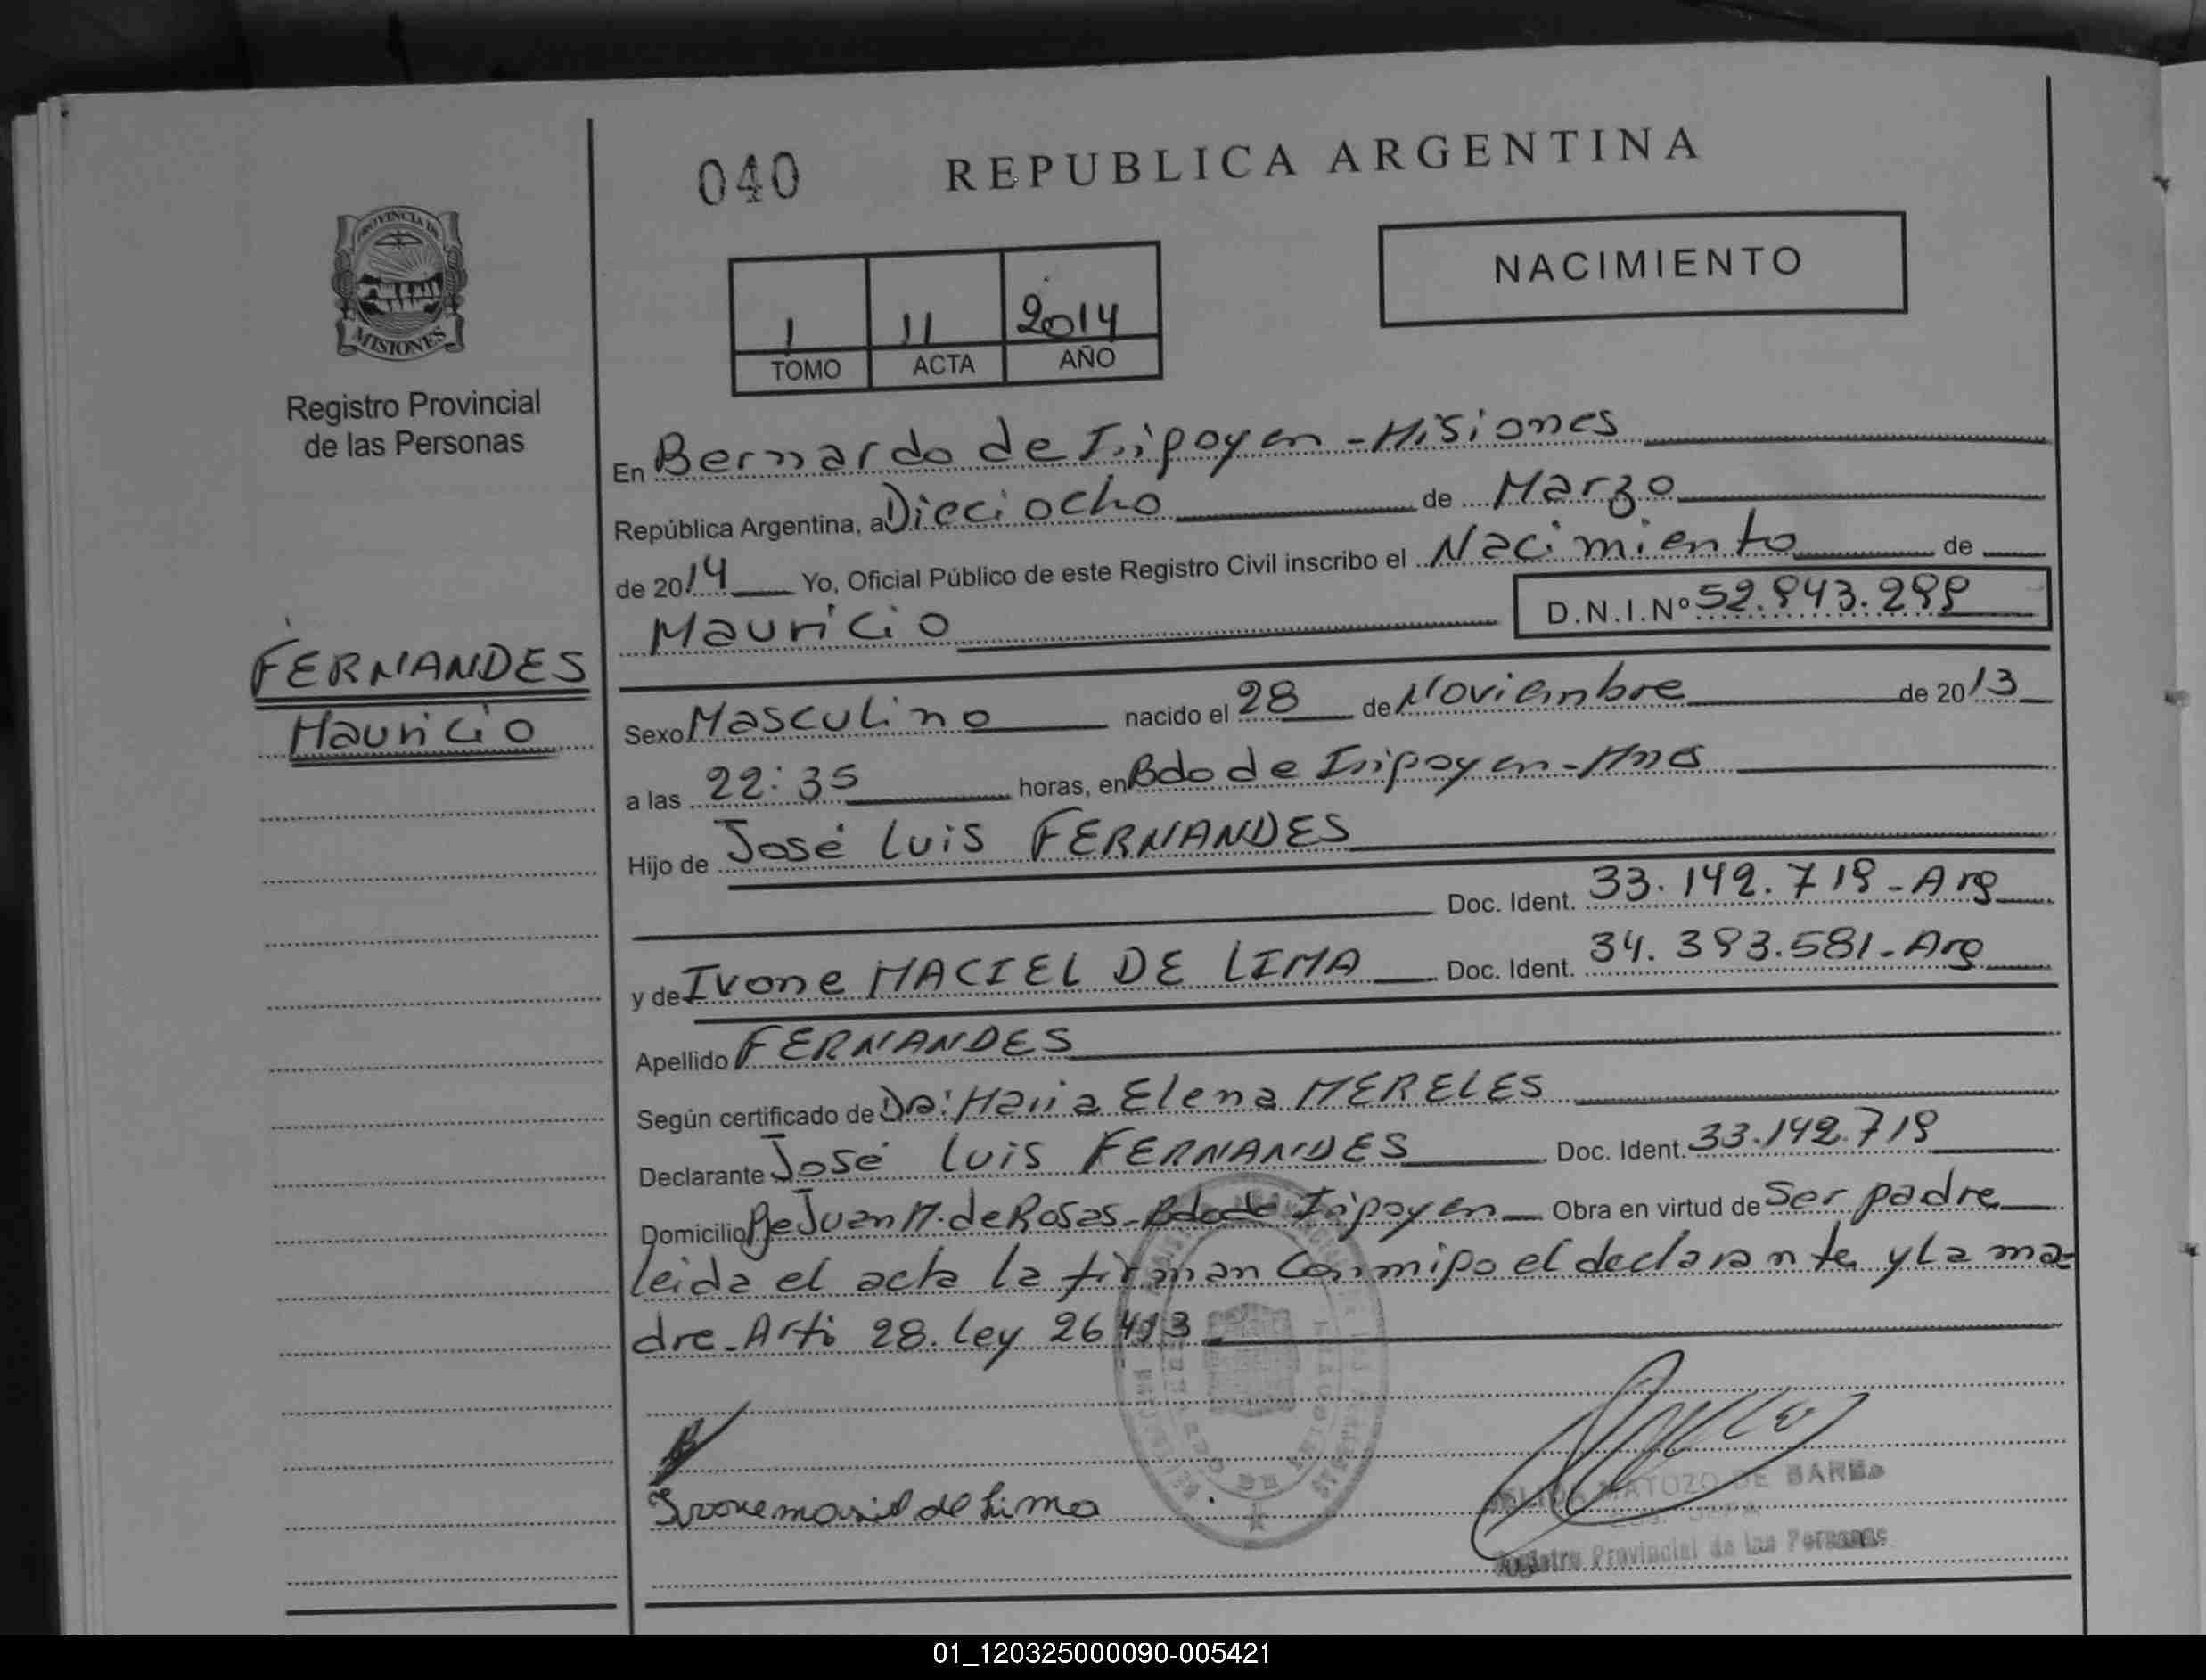 040
REPUBLICA ARGENTINA
PROVINCIA DE
MISIONES
NACIMIENTO
1 11 2014
TOMO ACTA AÑO
Registro Provincial
de las Personas
En Bernardo de Irigoyen - Misiones
República Argentina, a Dieciocho de Marzo
de 2014 Yo, Oficial Público de este Registro Civil inscribo el Nacimiento de
Mauricio D.N.I.Nº
FERNANDES
Mauricio
Sexo Masculino nacido el 28 de Noviembre de 2013
a las 22:35 horas, en Bdo de Irigoyen - Mnes
Hijo de José Luis FERNANDES
Doc. Ident. 33.142.719 - Arg
y de Ivone MACIEL DE LIMA Doc. Ident. 34.393.581 - Arg
Apellido FERNANDES
Según certificado de Dra: Maria Elena MERELES
Declarante José Luis FERNANDES Doc. Ident. 33.142.719
Domicilio Juan M. de Rosas - Bdo de Irigoyen Obra en virtud de Ser padre
leida el acta la firman Conmigo el declarante y La ma-
dre - Arti 28. Ley 26413
Ivone maciel de Lima
MATOZO DE
Registro Provincial de las Personas
01_120325000090-005421